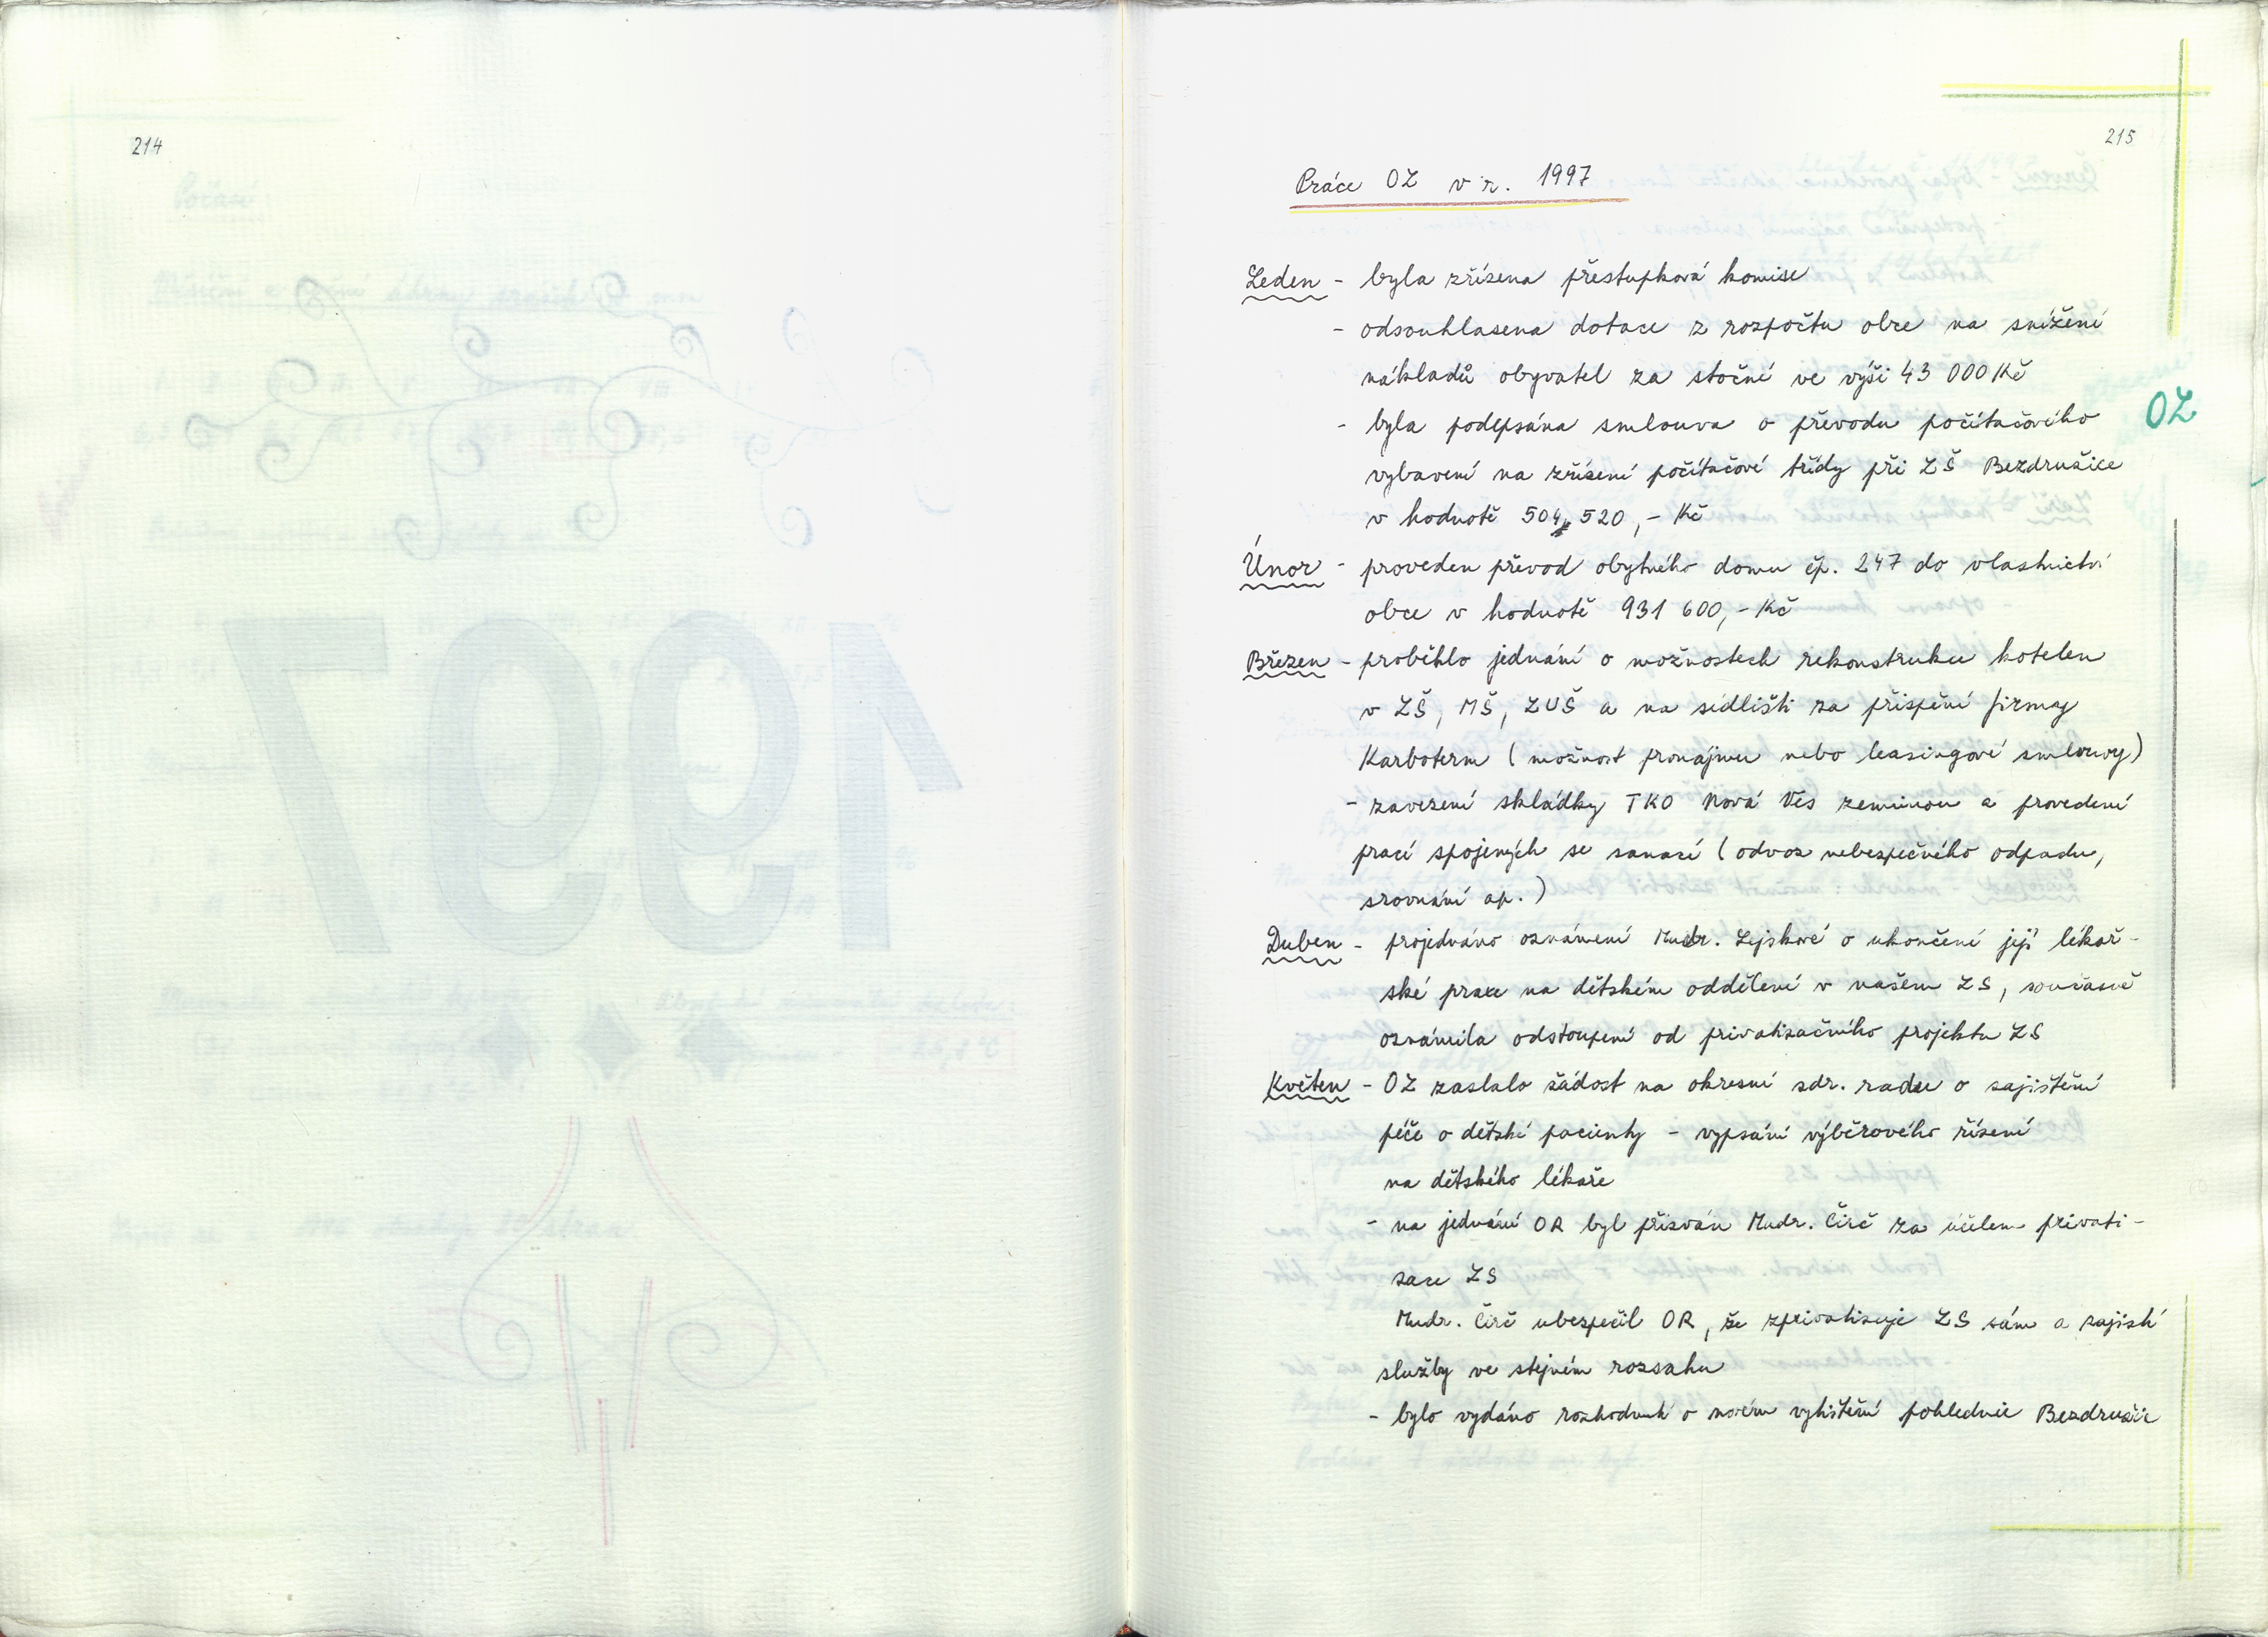 214
215
Práce OZ v r. 1997
Leden - byla zřízena přestupková komise
- odsouhlasena dotace z rozpočtu obce na snížení
nákladů obyvatel za stočné ve výši 43 000 Kč
- byla podepsána smlouva o převodu počítačového
OZ
vybavení na zřízení počítačové třídy při ZŠ Bezdružice
v hodnotě 504 520,- Kč
Únor - proveden převod obytného domu čp. 247 do vlastnictví
obce v hodnotě 931 600,- Kč
Březen - proběhlo jednání o možnostech rekonstrukce kotelen
v ZŠ, MŠ, ZUŠ a na sídlišti za přispění firmy
Karboterm (možnost pronájmu nebo leasingové smlouvy)
- zavezení skládky TKO Nová Ves zeminou a provedení
prací spojených se sanací (odvoz nebezpečného odpadu,
srovnání ap.)
Duben - projednáno oznámení Mudr. Lejskové o ukončení její lékař-
ské praxe na dětském oddělení v našem ZS, současně
oznámila odstoupení od privatizačního projektu ZS
Květen - OZ zaslalo žádost na okresní zdr. radu o zajištění
péče o dětské pacienty - vypsání výběrového řízení
na dětského lékaře
- na jednání OR byl přizván Mudr. Čirč za účelem privati-
zace ZS
Mudr. Čirč ubezpečil OR, že zprivatizuje ZS sám a zajistí
služby ve stejném rozsahu
- bylo vydáno rozhodnutí o novém vytištění pohlednic Bezdružic